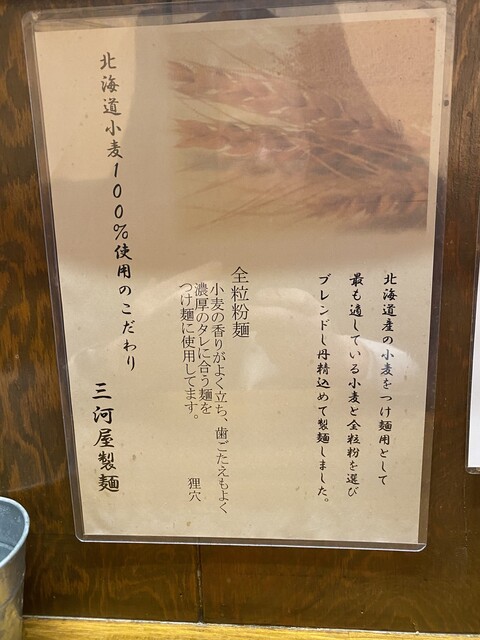 北海道産の小麦をつけ麺用として
最も適している小麦と全粒粉を選び
ブレンドし丹精込めて製麺しました。
全粒粉麺
小麦の香りがよく立ち、歯ごたえもよく
濃厚のタレに合う麺を
つけ麺に使用してます。
狸穴
北海道小麦100%使用のこだわり
三河屋製麺